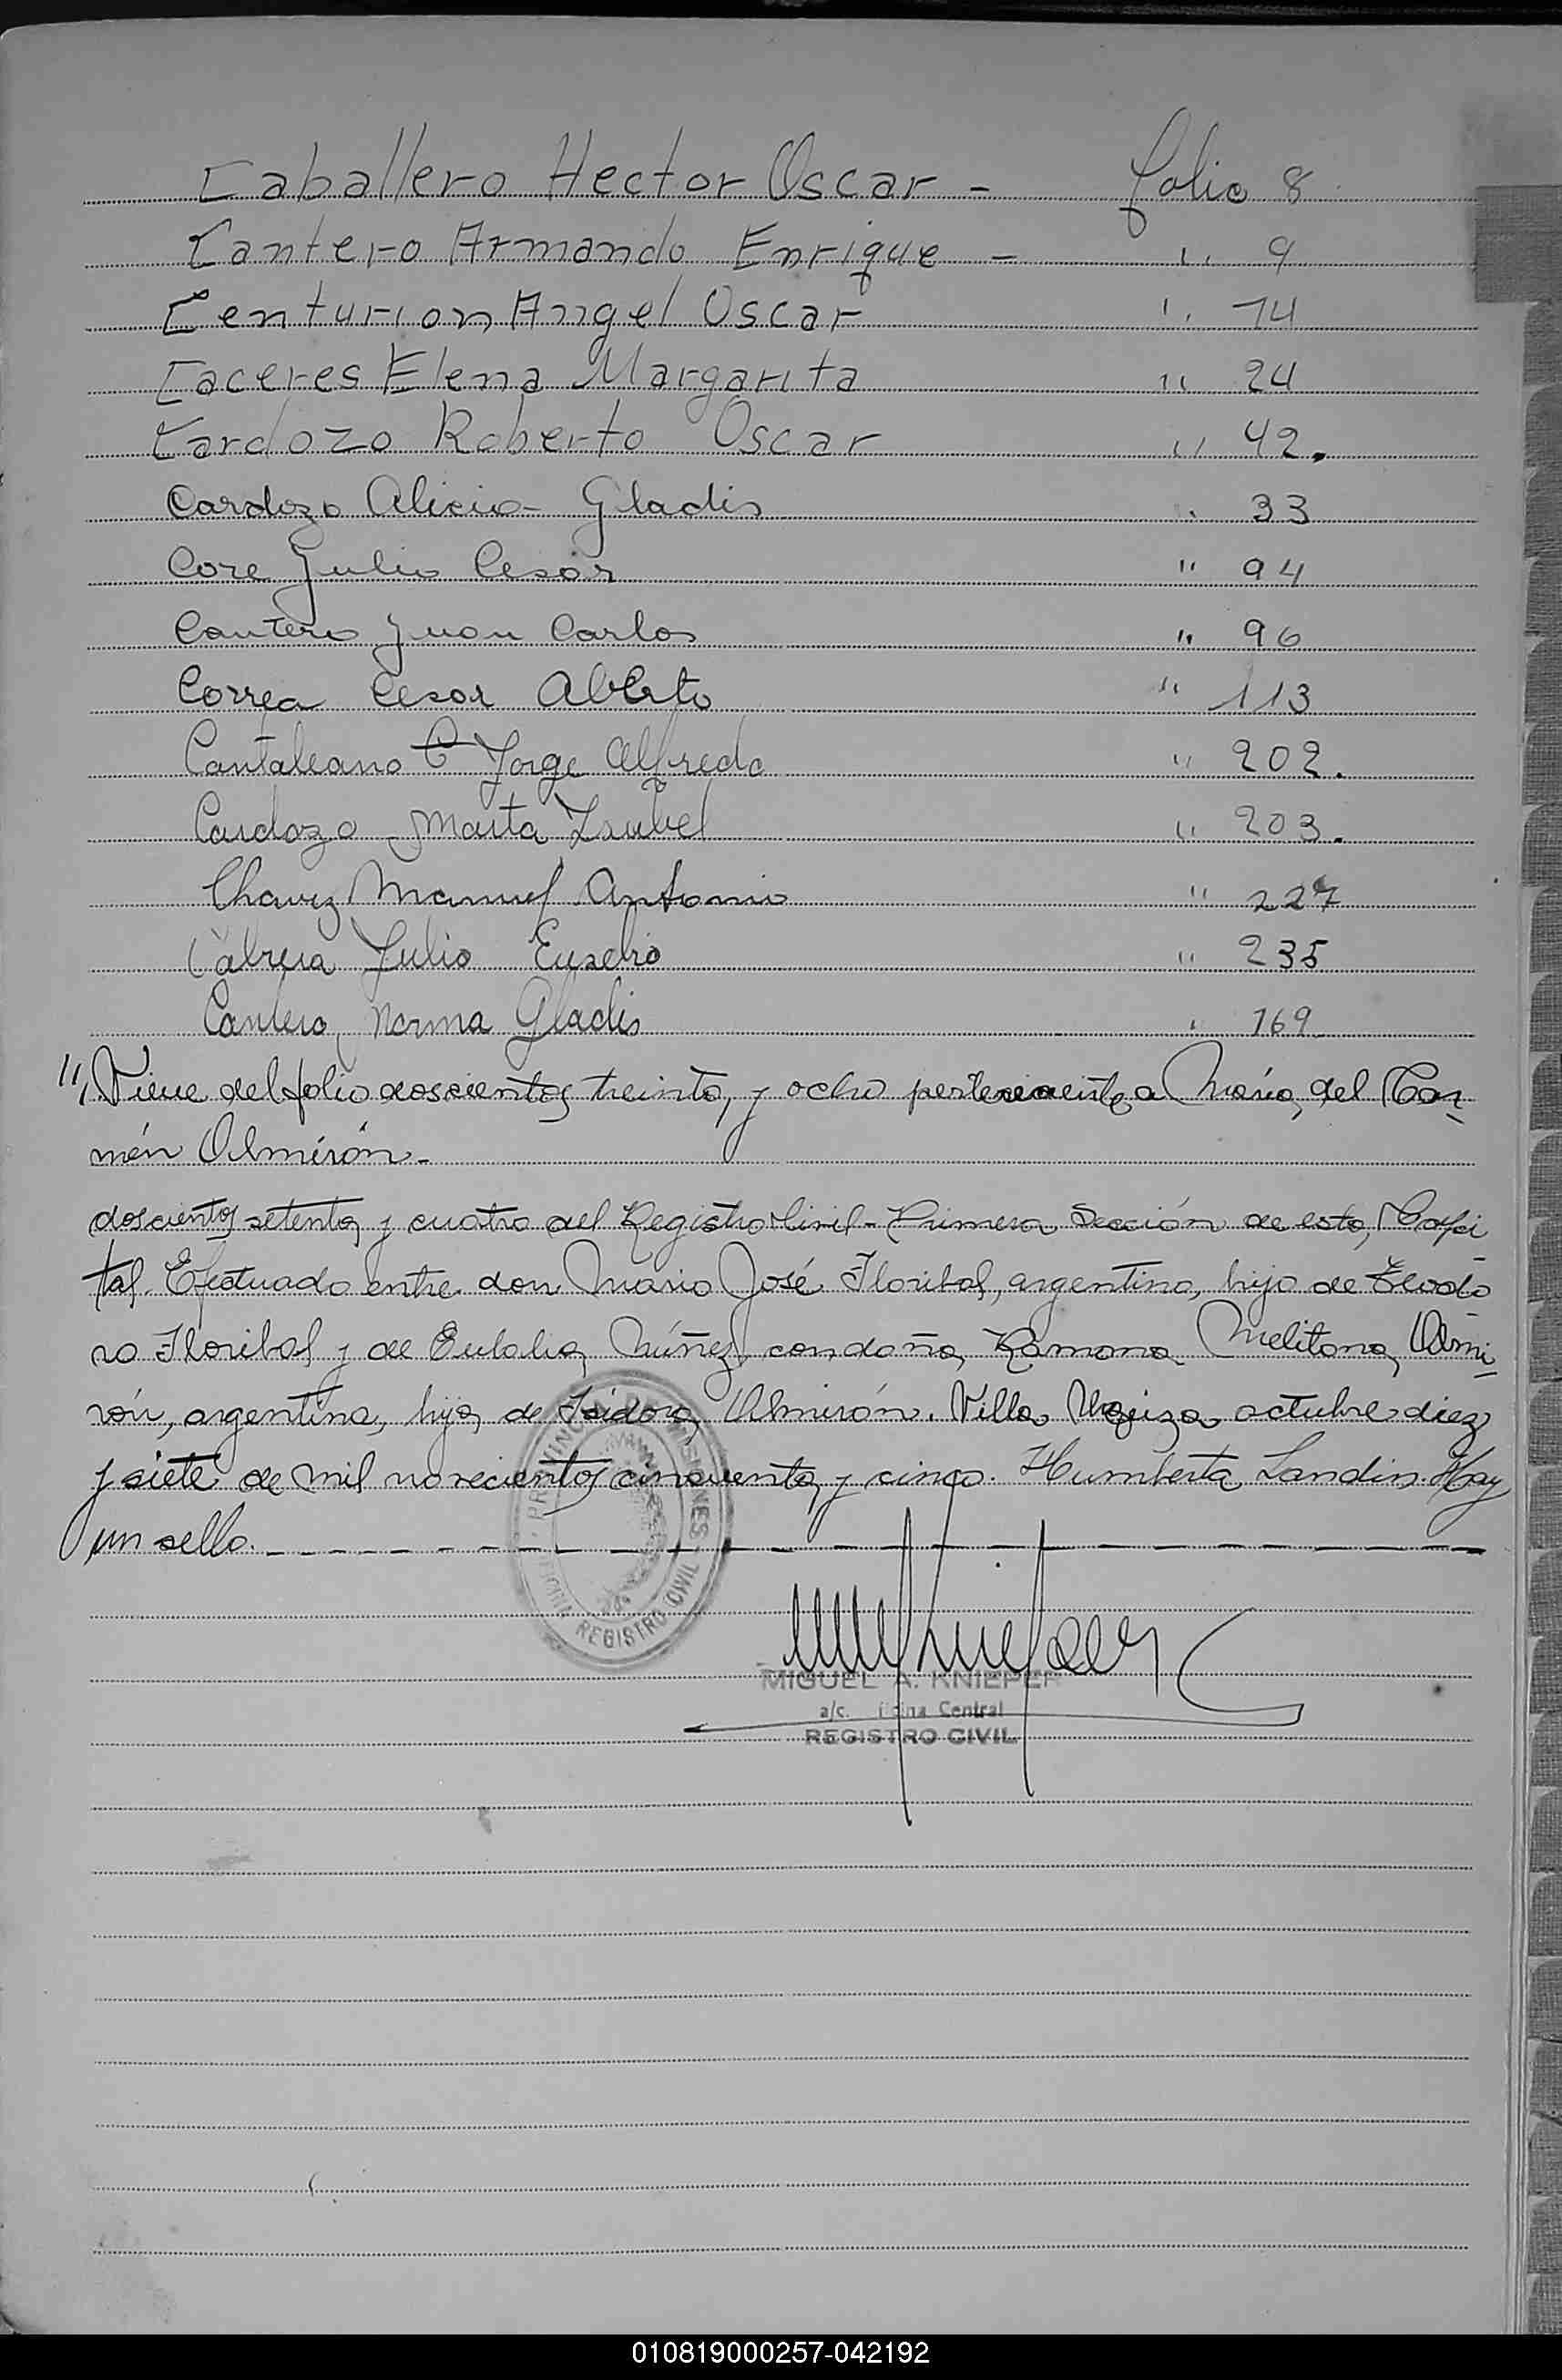 Caballero Hector Oscar - folio 8
Cantero Armando Enrique - " 9
Centurion Angel Oscar " 14
Caceres Elena Margarita " 24
Cardozo Roberto Oscar " 42.
Cardozo Alicia Gladis " 33
Core Julio Cesar " 94
Cantero Juan Carlos " 96
Correa Cesar Alberto " 113
Cantaleano C Jorge Alfredo " 202.
Cardozo Marta Isabel " 203.
Chavez Manuel Antonio " 227
Cabrera Julio Eusebio " 235
Cantero, Norma Gladis " 169
", Viene del folio doscientos treinta y ocho perteneciente a María del Car-
mén Almirón.-
doscientos setenta y cuatro del Registro Civil - Primera Sección de esta Capi-
tal. Efectuado entre don Mario José Floribal, argentino, hijo de Teodo-
ro Floribal y de Eulalia Núñez con doña Ramona Melitona Almi-
rón, argentina, hija de Isidora Almirón. Villa octubre diez
y siete de mil novecientos cincuenta y cinco. Humberta Landin. Hay
un sello.
PROVINCIA DE MISIONES
REGISTRO CIVIL
MIGUEL A. KNIEPER
a/c. Oficina Central
REGISTRO CIVIL
010819000257-042192